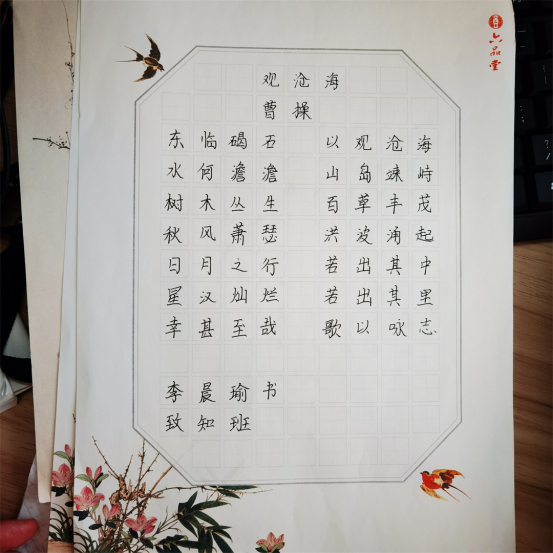 六品堂
观沧海
曹操
东临碣石 以观沧海
水何澹澹 山岛竦峙
树木丛生 百草丰茂
秋风萧瑟 洪波涌起
日月之行 若出其中
星汉灿烂 若出其里
幸甚至哉 歌以咏志
李晨瑜书
致知班